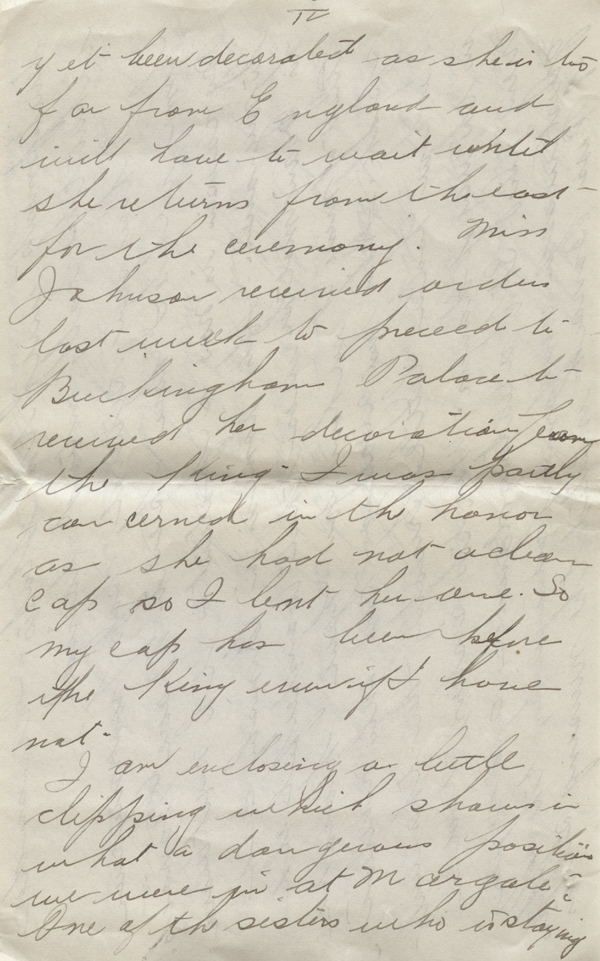 IV
yet been decorated as she is too
far from England and
will have to wait until
she returns from the east
for the ceremony. Miss
Johnson received orders
last week to proceed to
Buckingham Palace to
received her decoration from
the King. I was partly
concerned in the honor
as she had not a clean
cap so I lent her one. So
my cap has been before
the King even if I have
not.
I am enclosing a little
clipping which shows in
what a dangerous position
we were in at Margate.
One of th sisters who is staying